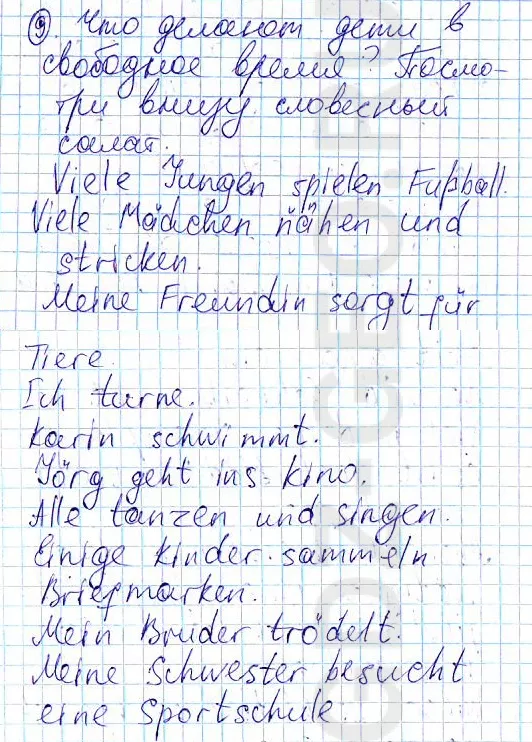 9. Что делают дети в
свободное время? Посмо-
три внизу словесный
салат.
Viele Jungen spielen Fußball.
Viele Mädchen nähen und
stricken.
Meine Freundin sorgt für
Tiere.
Ich turne.
Karin schwimmt.
Jörg geht ins Kino.
Alle tanzen und singen.
Einige Kinder sammeln
Briefmarken.
Mein Bruder trödelt.
Meine Schwester besucht
eine Sportschule.